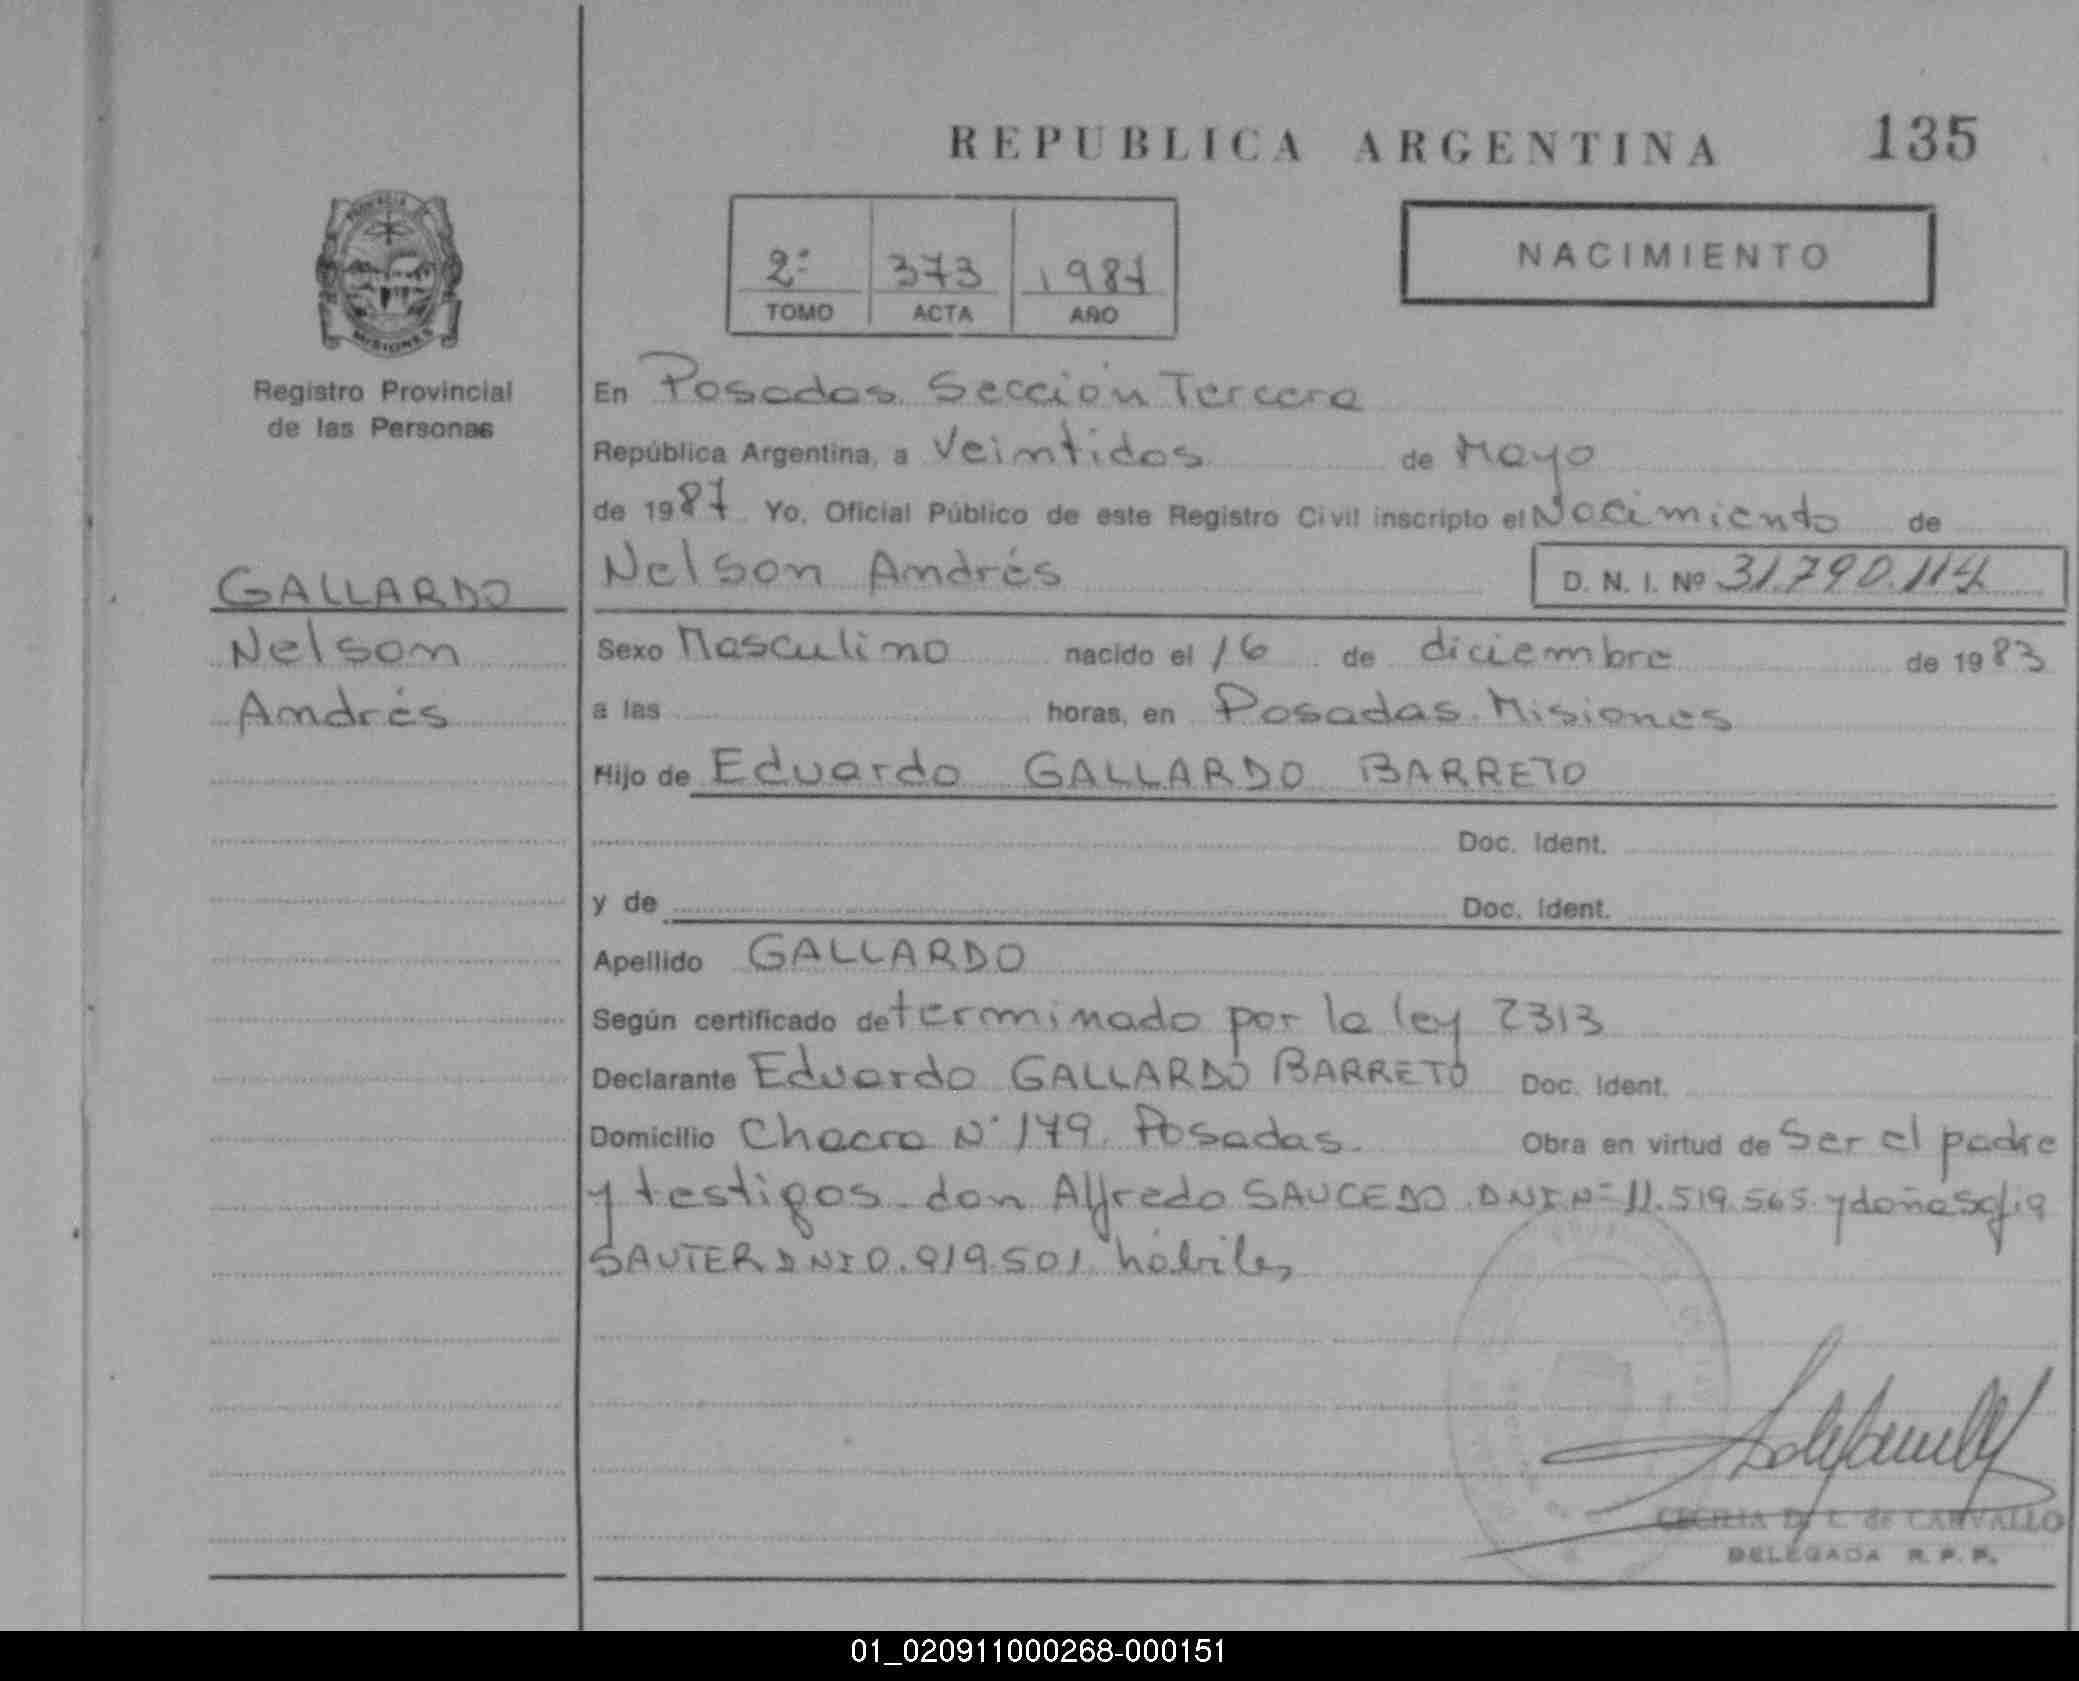 REPUBLICA ARGENTINA 135
PROVINCIA DE
MISIONES
Registro Provincial
de las Personas
2º 373 1987
TOMO ACTA AÑO
NACIMIENTO
GALLARDO
Nelson
Andrés
En Posadas Sección Tercera
República Argentina, a Veintidos de Mayo
de 1987 Yo, Oficial Público de este Registro Civil inscripto el Nacimiento de
Nelson Andrés D. N. I. Nº 31.790.114
Sexo Masculino nacido el 16 de diciembre de 1983
a las horas, en Posadas. Misiones
Hijo de Eduardo GALLARDO BARRETO
Doc. Ident.
y de Doc. Ident.
Apellido GALLARDO
Según certificado determinado por la ley 2313
Declarante Eduardo GALLARDO BARRETO Doc. Ident.
Domicilio Chacra Nº 179. Posadas. Obra en virtud de Ser el padre
y testigos don Alfredo SAUCEDO DNI Nº 11.519.565 y doña Sofia
SAUTER DNI 0.919.501 hábiles
CECILIA D. L. de CARVALLO
DELEGADA R. P. P.
01_020911000268-000151